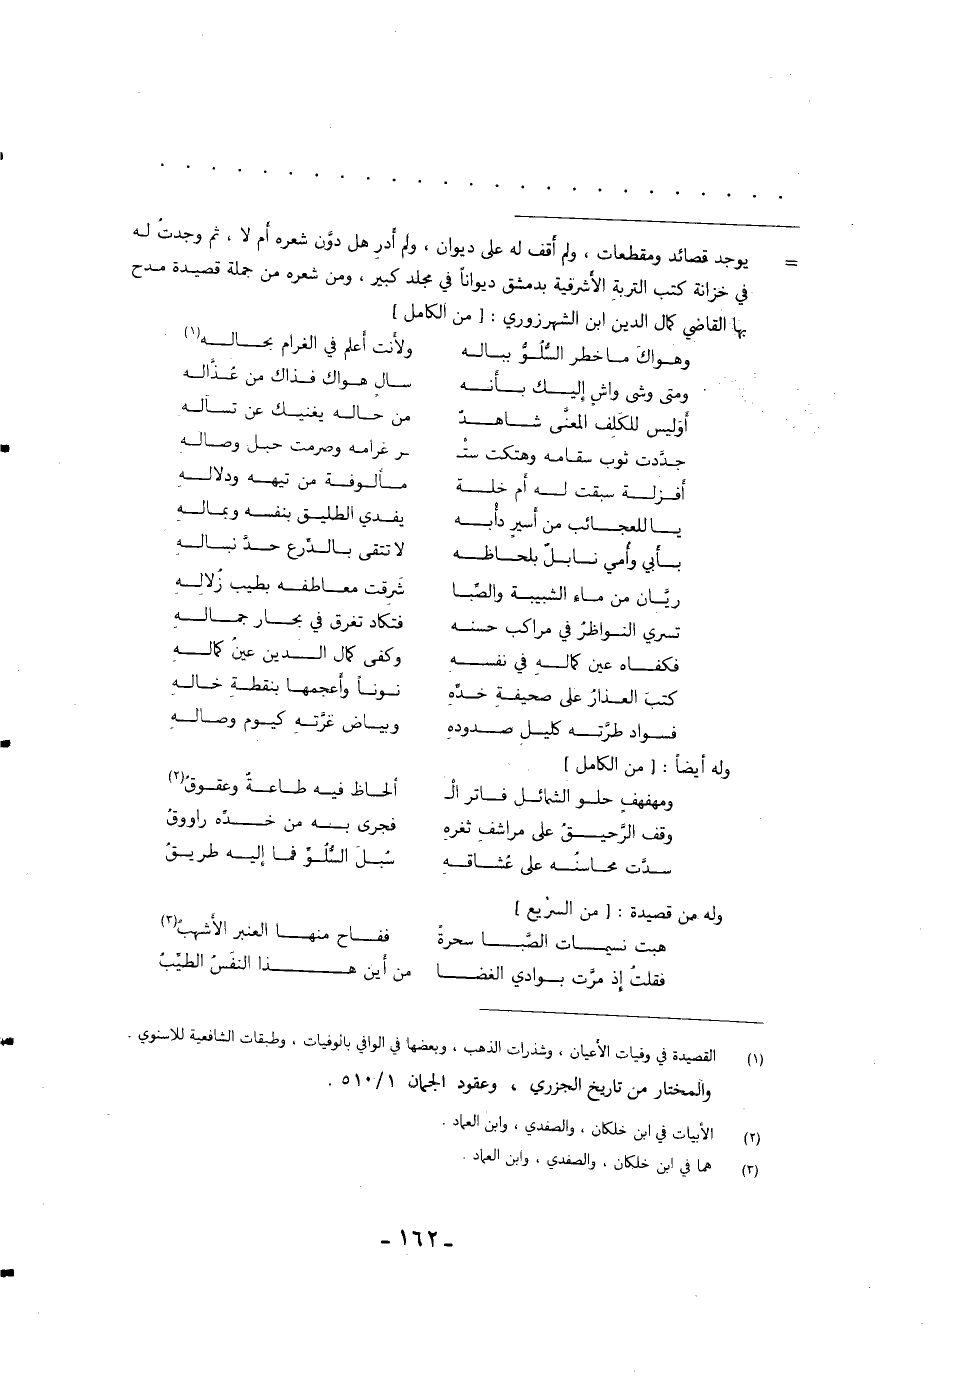 . . . . . . . . . . . . . . . . . . . . . . . . .
= يوجد قصائد ومقطعات ، ولم أقف له على ديوان ، ولم أدرِ هل دوَّن شعره أم لا ، ثم وجدتُ له
في خزانة كتب التربة الأشرفية بدمشق ديواناً في مجلد كبير ، ومن شعره من جملة قصيدة مدح
بها القاضي كمال الدين ابن الشهرزوري : [ من الكامل ]
وهواكَ ما خطر السُّلُوُّ بباله ولأنت أعلم في الغرام بحاله(١)
ومتى وشى واشٍ إليك بأنه سالٍ هواك فذاك من عُذَّاله
أوَليس للكَلِف المعنَّى شاهدٌ من حاله يغنيك عن تسآله
جدَّدت ثوب سقامه وهتكت ستْـ ـر غرامه وصرمت حبل وصاله
أفزلة سبقت له أم خلة مألوفة من تيهه ودلاله
يا للعجائب من أسيرٍ دأبه يفدي الطليق بنفسه وبماله
بأبي وأمي نابلٌ بلحاظه لا تتقى بالدِّرع حدَّ نباله
ريَّان من ماء الشبيبة والصِّبا شَرِقت معاطفه بطيب زُلاله
تسري النواظرُ في مراكب حسنه فتكاد تغرق في بحار جماله
فكفاه عين كماله في نفسه وكفى كمال الدين عينُ كماله
كتبَ العذارُ على صحيفة خدِّه نوناً وأعجمها بنقطة خاله
فسواد طرَّته كليل صدوده وبياض غرَّته كيوم وصاله
وله أيضاً : [ من الكامل ]
ومهفهفٍ حلو الشمائل فاتر الـ ألحاظ فيه طاعةٌ وعقوقُ(٢)
وقف الرَّحيقُ على مراشف ثغره فجرى به من خدِّه راووقُ
سدَّت محاسنُه على عُشاقه سُبلَ السُّلُوِّ فما إليه طريقُ
وله من قصيدة : [ من السريع ]
هبت نسيمات الصَّبا سحرةً ففاح منها العنبر الأشهبُ(٣)
فقلتُ إذ مرَّت بوادي الغضا من أين هذا النفَسُ الطيِّبُ
(١) القصيدة في وفيات الأعيان ، وشذرات الذهب ، وبعضها في الوافي بالوفيات ، وطبقات الشافعية للاسنوي .
والمختار من تاريخ الجزري ، وعقود الجمان ٥١٠/١ .
(٢) الأبيات في ابن خلكان ، والصفدي ، وابن العماد .
(٣) هما في ابن خلكان ، والصفدي ، وابن العماد .
- ١٦٢ -